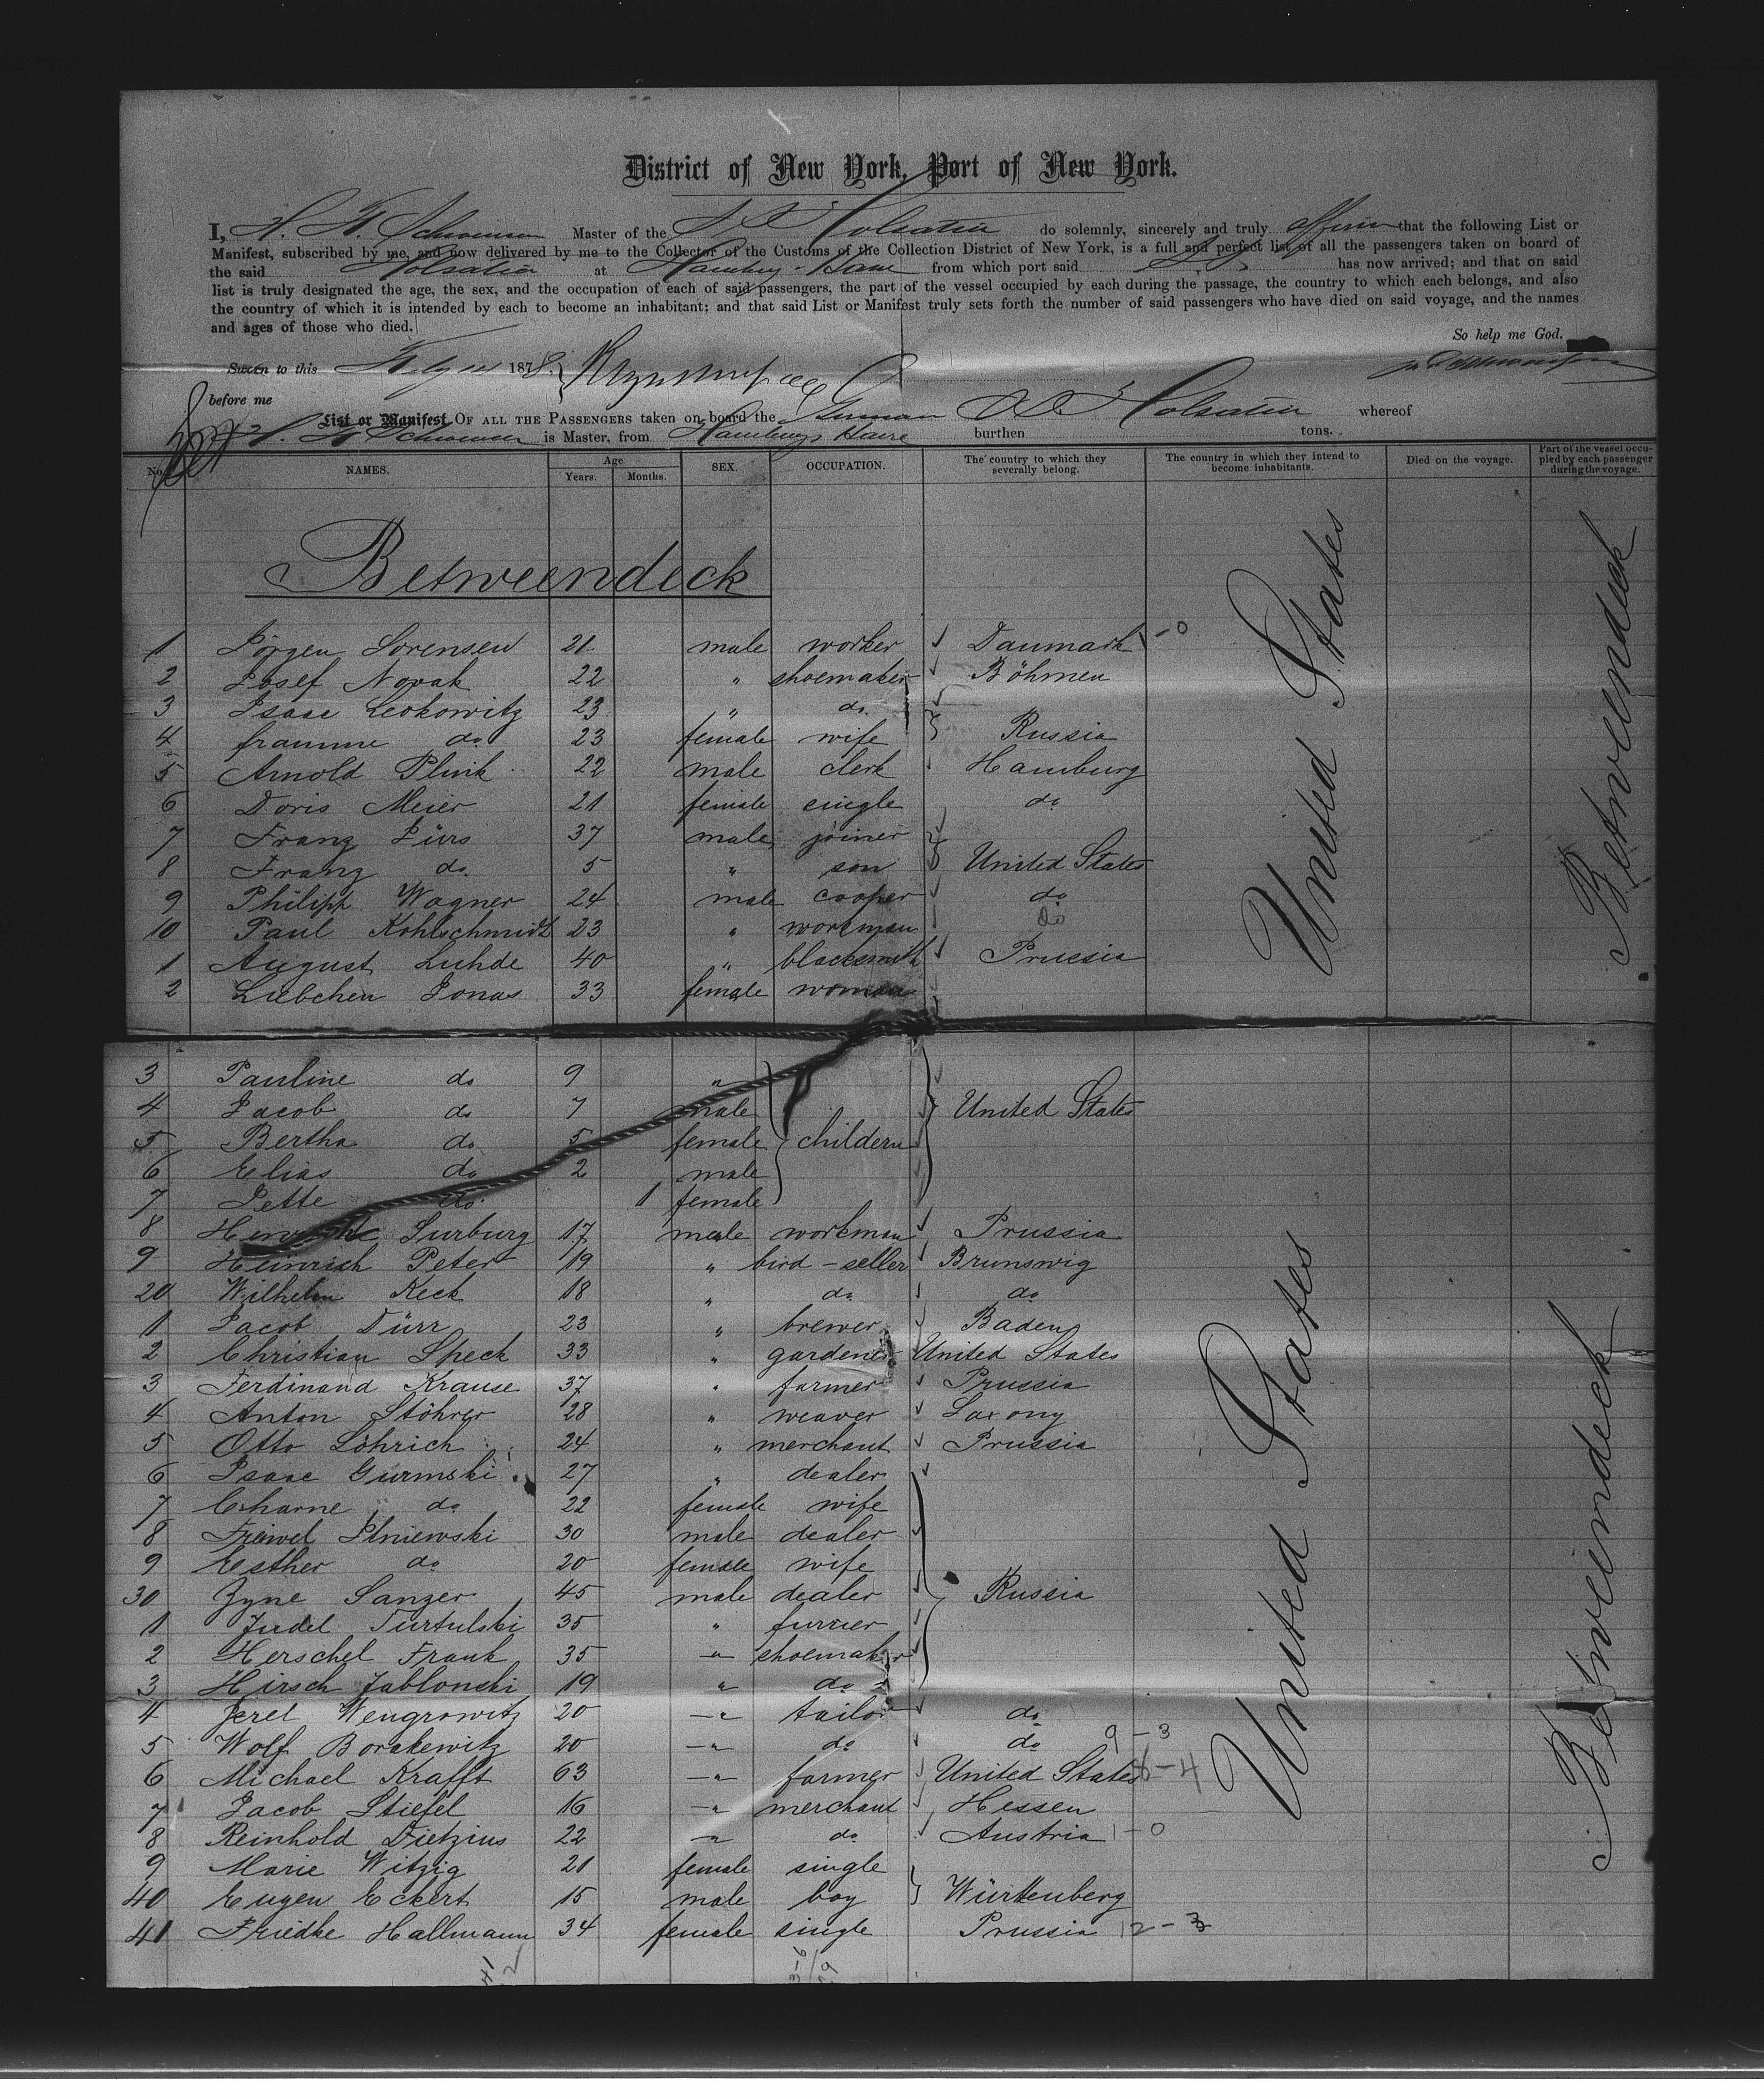 District of New York, Port of New York.
I, Master of the S S Holsatia do solemnly, sincerely and truly affirm that the following List or
Manifest, subscribed by me, and now delivered by me to the Collector of the Customs of the Collection District of New York, is a full and perfect list of all the passengers taken on board of
the said Holsatia at Hamburg - Havre from which port said has now arrived; and that on said
list is truly designated the age, the sex, and the occupation of each of said passengers, the part of the vessel occupied by each during the passage, the country to which each belongs, and also
the country of which it is intended by each to become an inhabitant; and that said List or Manifest truly sets forth the number of said passengers who have died on said voyage, and the names
and ages of those who died.
So help me God.
Sworn to this 1878.
before me
List or Manifest OF ALL THE PASSENGERS taken on board the German S S Holsatia whereof
is Master, from Hamburg Havre burthen tons.
No. NAMES. Age Years. Months. SEX. OCCUPATION. The country to which they severally belong. The country in which they intend to become inhabitants. Died on the voyage. Part of the vessel occupied by each passenger during the voyage.
Betweendeck
1 Jörgen Sorensen 21 male worker Danmark 1-0
2 Josef Novak 22 " shoemaker Böhmen
3 Isaac Leokowitz 23 " do
4 framme do 23 female wife Russia
5 Arnold Plink 22 male clerk Hamburg
6 Doris Meier 21 female single do
7 Franz Lürs 37 male joiner
8 Franz do 5 " son United States
9 Philipp Wagner 24 male cooper do
10 Paul Kohlschmidt 23 " workman do
1 August Luhde 40 " blacksmith Prussia
2 Liebchen Jonas 33 female woman
3 Pauline do 9 "
4 Jacob do 7 male United States
5 Bertha do 5 female childern
6 Elias do 2 male
7 Jette do 1 female
8 Surburg 17 male workman Prussia
9 Heinrich Peter 19 " bird-seller Brunswig
20 Wilhelm Keck 18 " do do
1 Jacob Dürr 23 " brewer Baden
2 Christian Speck 33 " gardener United States
3 Ferdinand Krause 37 " farmer Prussia
4 Anton Stöhrer 28 " weaver Saxony
5 Otto Löhrich 24 " merchant Prussia
6 Isaac Gurmski 27 " dealer
7 Charne do 22 female wife
8 Freiwel Plniewski 30 male dealer
9 Esther do 20 female wife
30 Zyne Sanger 45 male dealer Russia
1 Judel Turtulski 35 " furrier
2 Herschel Frank 35 " shoemaker
3 Hirsch Jablonski 19 " do
4 Jerel Wengrowitz 20 " tailor do
5 Wolf Borakewitz 20 " do do 9-3
6 Michael Krafft 63 " farmer United States 6-4
7 Jacob Stiefel 16 " merchant Hessen
8 Reinhold Dietzius 22 " do Austria 1-0
9 Marie Witzig 21 female single
40 Eugen Eckert 15 male boy Würtenberg
41 Friedke Hallmann 34 female single Prussia 12-3
United States
Betweendeck
United States
Betweendeck
41
2